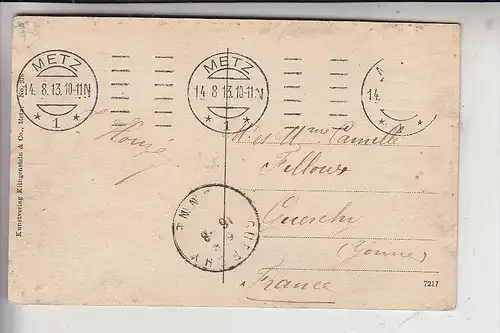 METZ
14.8.13.10-11N
* 1 *
METZ
14.8.13.10-11N
* 1 *
14.
Kunstverlag Klingenstein & Co., Metz. No.
Mr et Mme Camille
Guerchy
(Yonne)
France
GUERCHY
7217